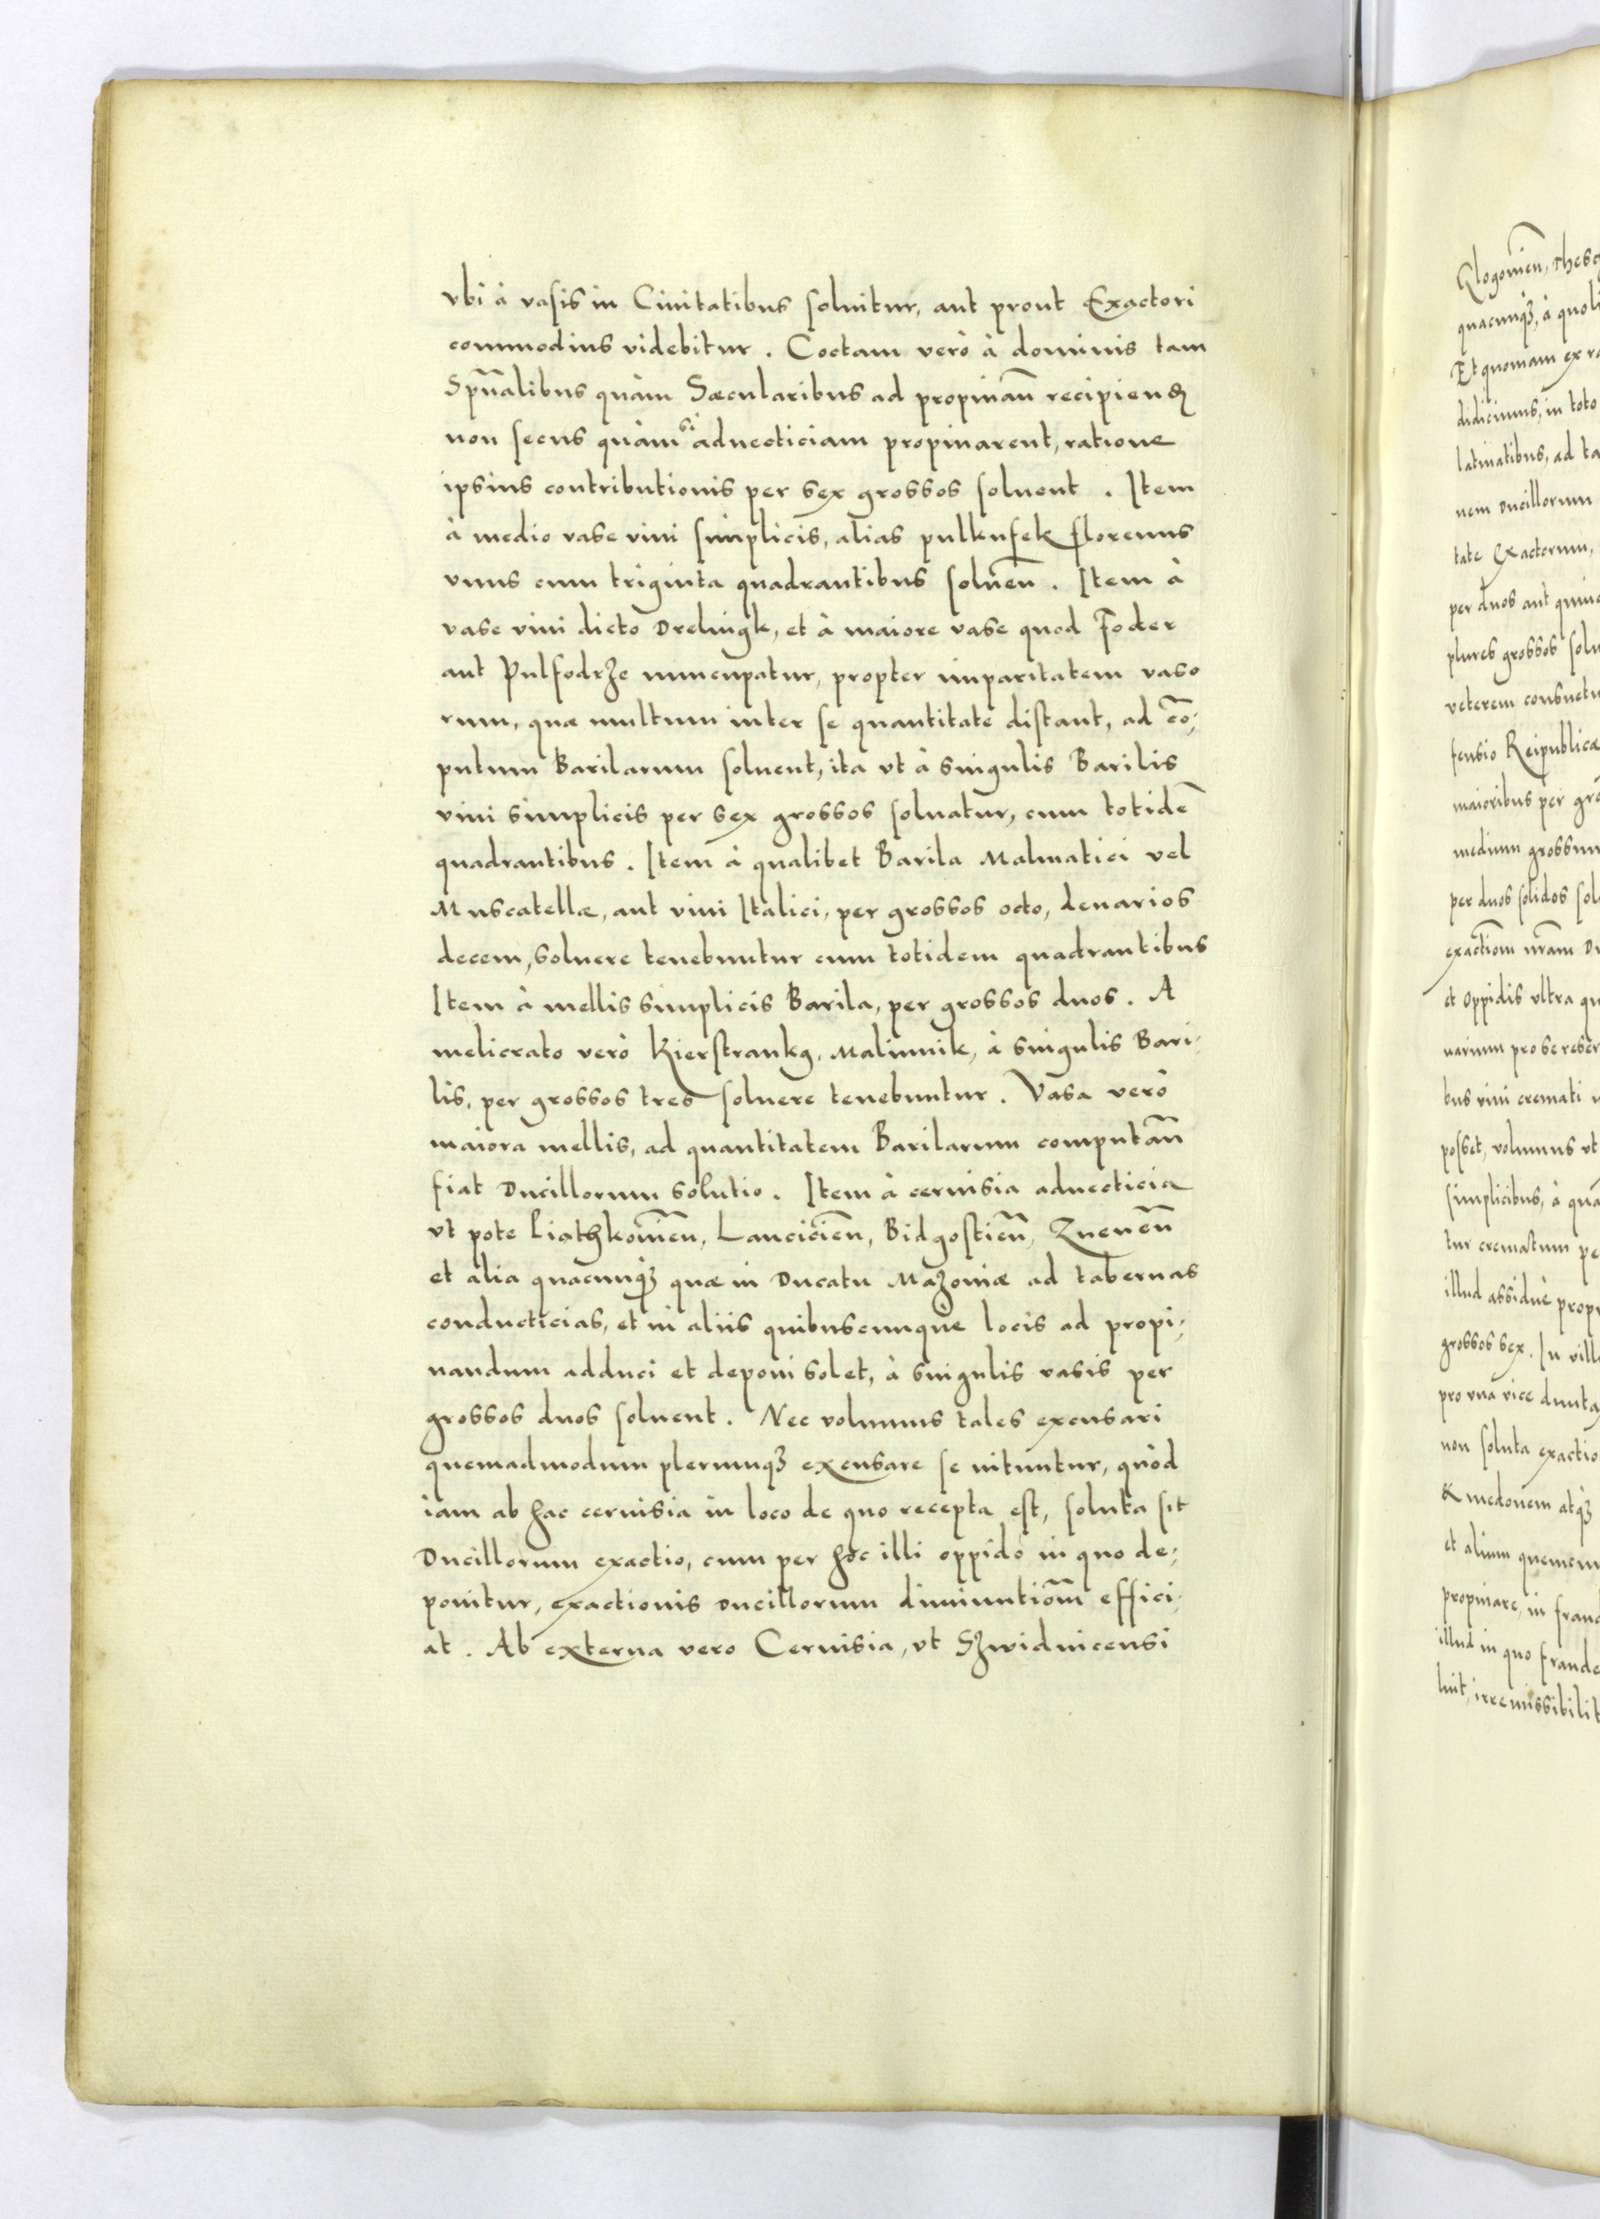 vbi à vasis in Ciuitatibus soluitur, aut prout Exactori
commodius videbitur. Coctam verò à dominis tam
Spũalibus quàm Sæcularibus ad propinañ recipienꝶ
non secus quàm si aduecticiam propinarent, ratione
ipsius contributionis per sex grossos soluent. Item
à medio vase vini simplicis, alias pulkufek florenus
vnus cum triginta quadrantibus soluen̄. Item à
vase vini dicto Drelingk, et à maiore vase quod Foder
aut Pulfodrze nuncupatur, propter imparitatem vaso
rum, quæ multum inter se quantitate distant, ad cō,
putum Barilarum soluent, ita vt à singulis Barilis
vini simplicis per sex grossos soluatur, cum totidē
quadrantibus. Item à qualibet Barila Malmatici vel
Muscatellæ, aut vini Italici, per grossos octo, denarios
decem, soluere tenebuntur cum totidem quadrantibus
Item à mellis simplicis Barila, per grossos duos. A
melicrato verò Kierstrankg, Malinnik, à singulis Bari,
lis, per grossos tres soluere tenebuntur. Vasa verò
maiora mellis, ad quantitatem Barilarum computan̄
fiat Ducillorum solutio. Item à ceruisia aduecticia
vt pote Piathkowien̄, Lancicien̄, Bidgostien̄, Znenen̄
et alia quacunqꝫ quæ in Ducatu Mazoniæ ad tabernas
conducticias, et in aliis quibuscunque locis ad propi,
nandum adduci et deponi solet, à singulis vasis per
grossos duos soluent. Nec volumus tales excusari
quemadmodum plerunqꝫ excusare se nituntur, quòd
iam ab hac ceruisia in loco de quo recepta est, soluta sit
Ducillorum exactio, cum per hoc illi oppido in quo de,
ponitur, exactionis ducillorum diminutiom̄ effici,
at. Ab externa vero Ceruisia, vt Szwidnicensi
Klogowien̄,
quacunqꝫ, à
Et quoniam
didicimus, in toto
latinatibus, ad
nem Ducillorum
tate Exactorum,
per duos aut
plures grossos
veterem
fensio Reipublicæ
maioribus per
medium grossum
per duos solidos
exactiom̄ nram̄
et oppidis vltra
uarium pro se
bus vini cremati
posset, volumus vt
simplicibus, à
tur crematum
illud assiduè
grossos sex. In
pro vna vice
non soluta exactio
& medonem atqꝫ
et alium
propinare, in
illud in quo fraude